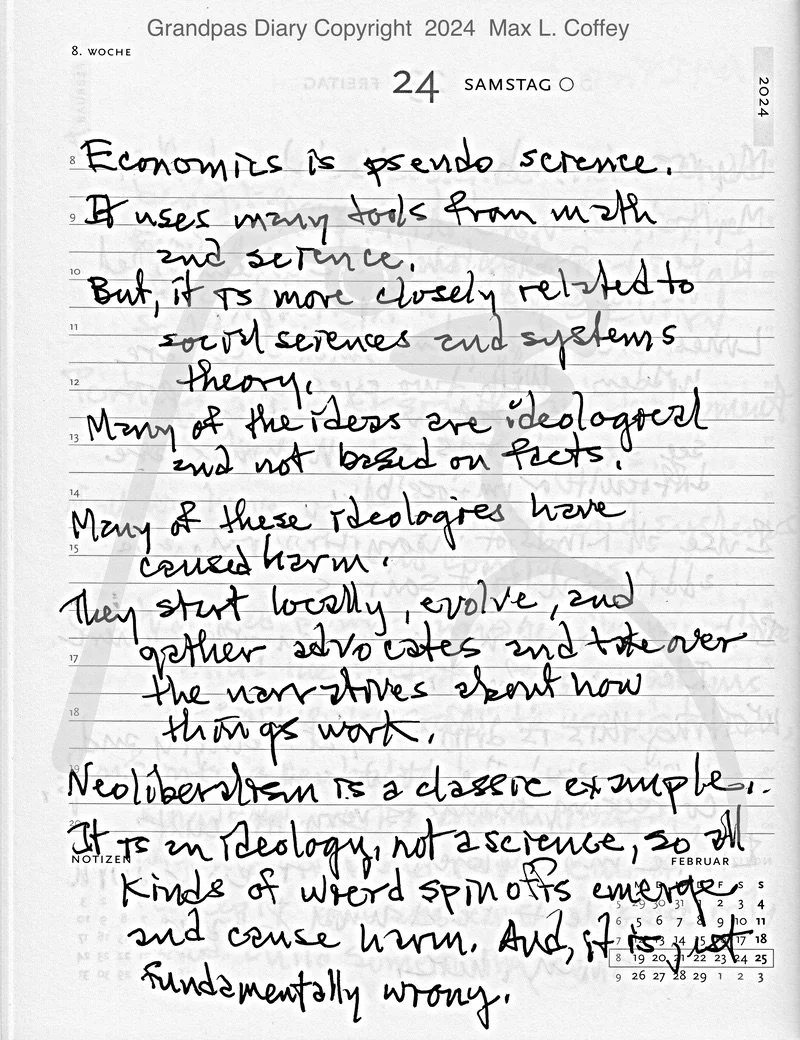 Grandpas Diary Copyright 2024 Max L. Coffey
8. WOCHE
24 SAMSTAG
2024
8 Economics is pseudo science.
9 It uses many tools from math
and science.
10 But, it is more closely related to
11 social sciences and systems
12 theory.
13 Many of the ideas are ideological
and not based on facts.
14 Many of these ideologies have
15 caused harm.
They start locally, evolve, and
17 gather advocates and take over
the narratives about how
18 things work.
19 Neoliberalism is a classic example.
20 It is an ideology, not a science, so all
NOTIZEN FEBRUAR
kinds of wierd spinoffs emerge
and cause harm. And, it is just
fundamentally wrong.
F S S
5 29 30 31 1 2 3 4
6 5 6 7 8 9 10 11
7 14 15 17 18
8 19 20 21 22 23 24 25
9 26 27 28 29 1 2 3